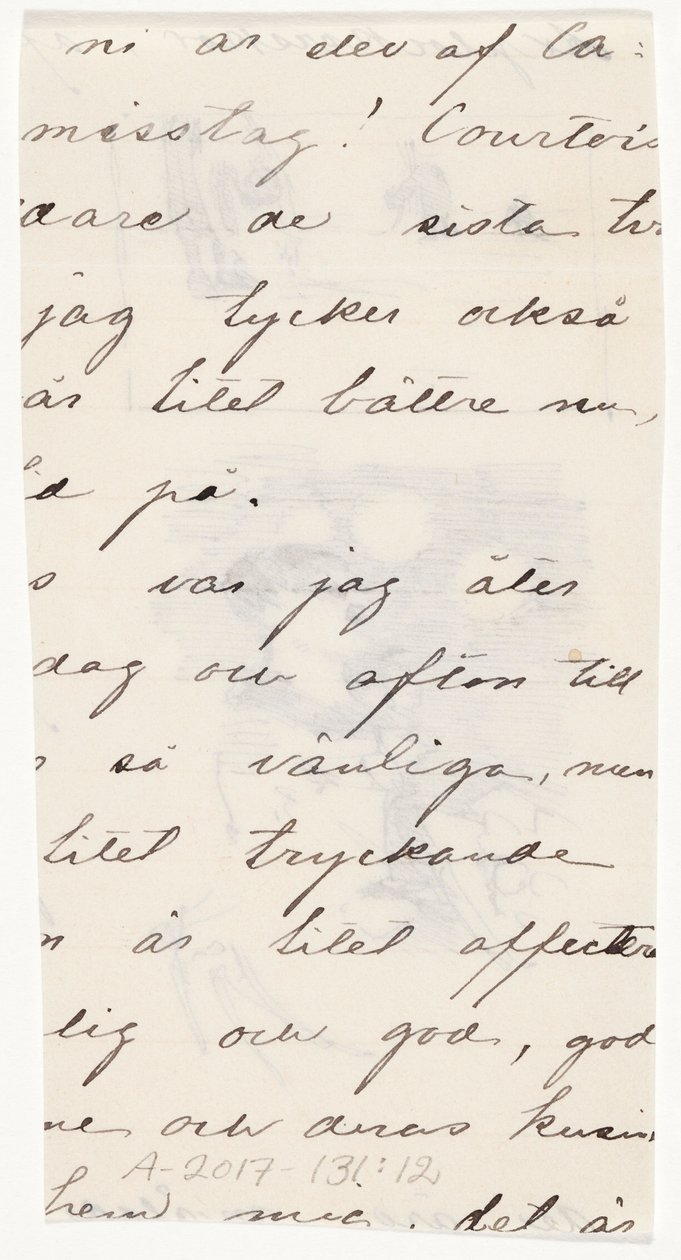 ni är elev af Ca:
misstag! Courtois
dare de sista
jag tycker också
är litet bättre nu,
på.
s var jag åter
dag och afton till
så vänliga, men
litet tryckande
n är litet affecter
lig och god, god
ne och deras kusin
A-2017-131:12
hem mig. det är